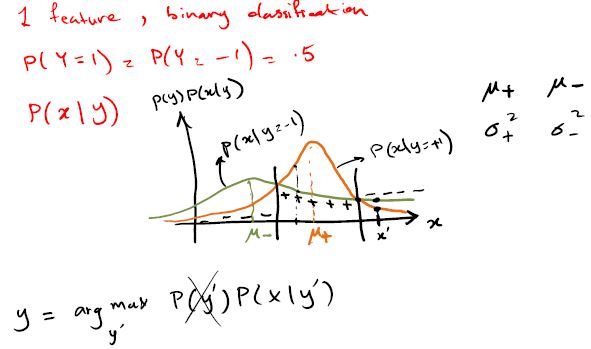 1 feature, binary classification
P(Y=1) = P(Y=-1) = .5
P(x|y)
P(y)P(x|y)
μ+ μ-
σ+² σ-²
P(x|y=-1)
P(x|y=+1)
+ + + + +
μ- μ+ x' x
y = arg max P(y')P(x|y')
y'